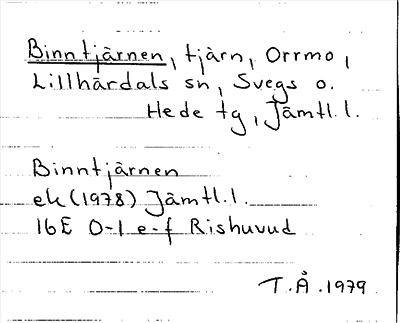 Binntjärnen, tjärn, Orrmo,
Lillhärdals sn, Svegs o.
Hede tg, Jämtl. l.
Binntjärnen
ek (1978) Jämtl. l.
16E 0-1 e-f Rishuvud
T.Å. 1979